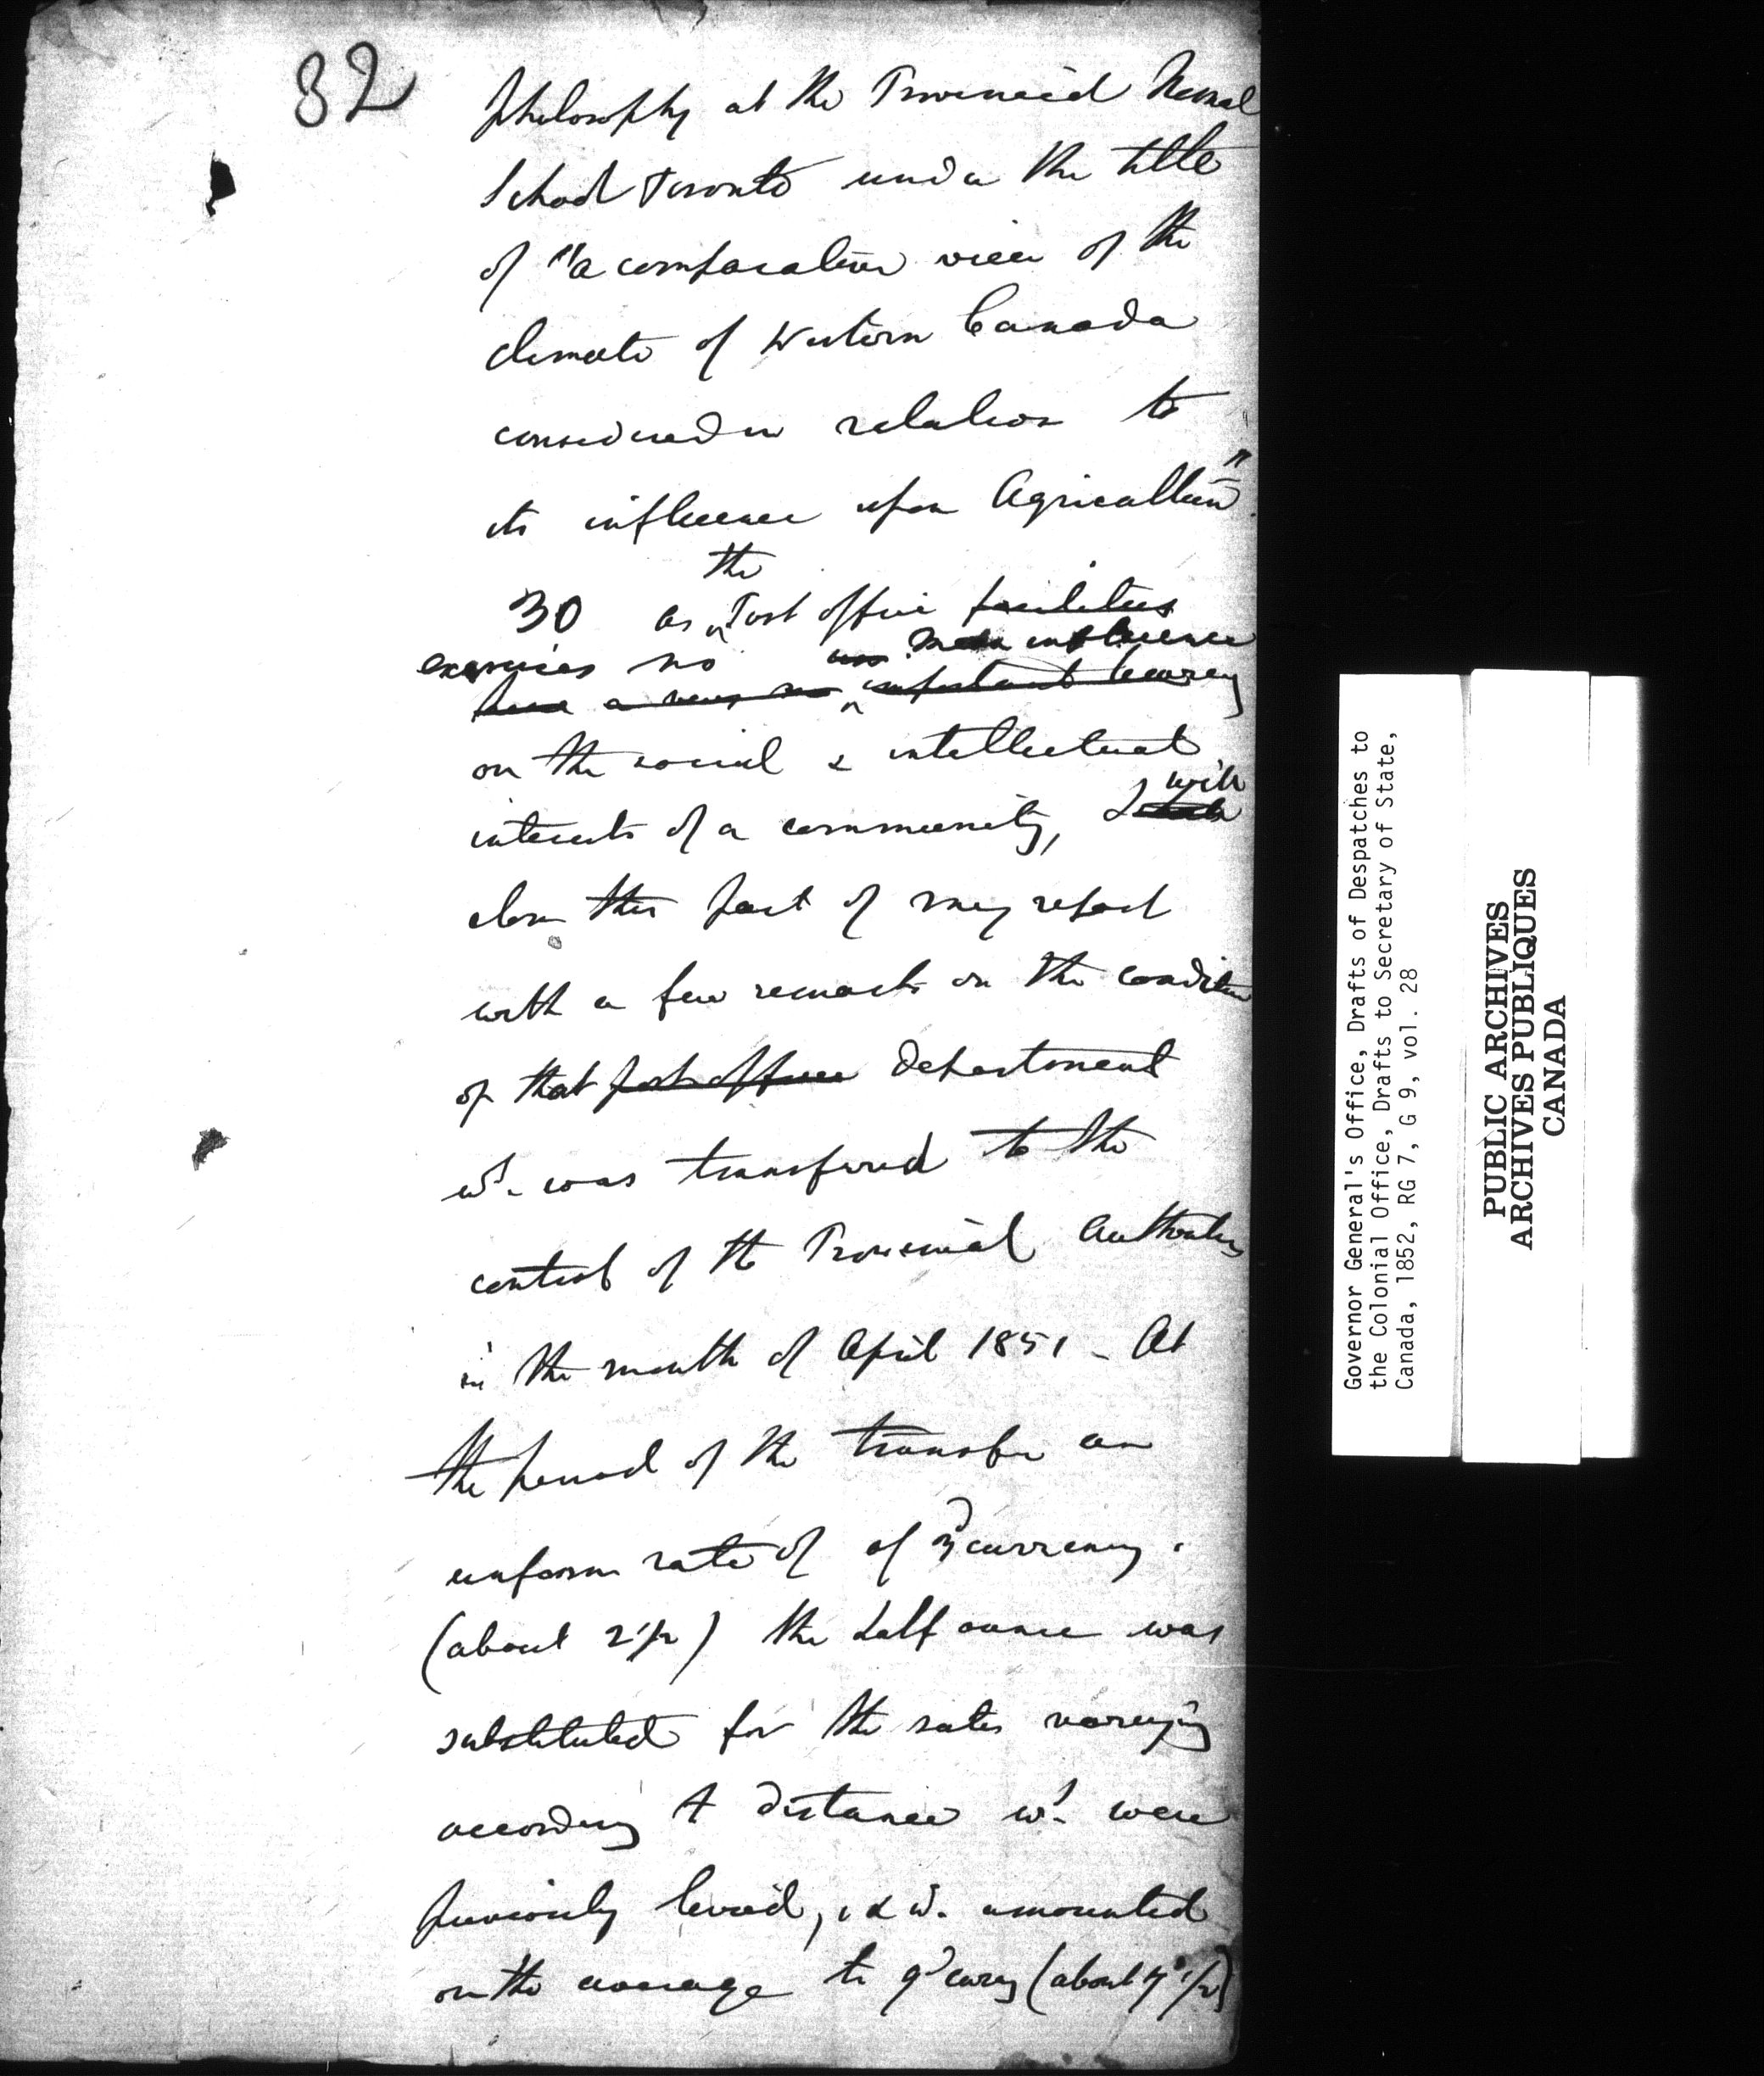 32
philosophy at the Provincial Normal
School Toronto under the title
of "a comparative view of the
climate of Western Canada
considered in relation to
its influence upon Agriculture"
the
30 as Post office facilities
exercises no influence
have a very no important bearing
on the social & intellectual
will
interests of a community, I
close this part of my report
with a few remarks on the condition
of that post office department
wh. was transferred to the
control of the Provincial Authorities
in the month of April 1851 - At
the period of the transfer an
uniform rate of of 3d currency
(about 2 1/2) the half ounce was
substituted for the rates varying
according to distance wh. were
previously levied, & wh. amounted
on the average to 9d curcy (about 7d 1/2)
Governor General's Office, Drafts of Despatches to
the Colonial Office, Drafts to Secretary of State,
Canada, 1852, RG 7, G 9, vol. 28
PUBLIC ARCHIVES
ARCHIVES PUBLIQUES
CANADA